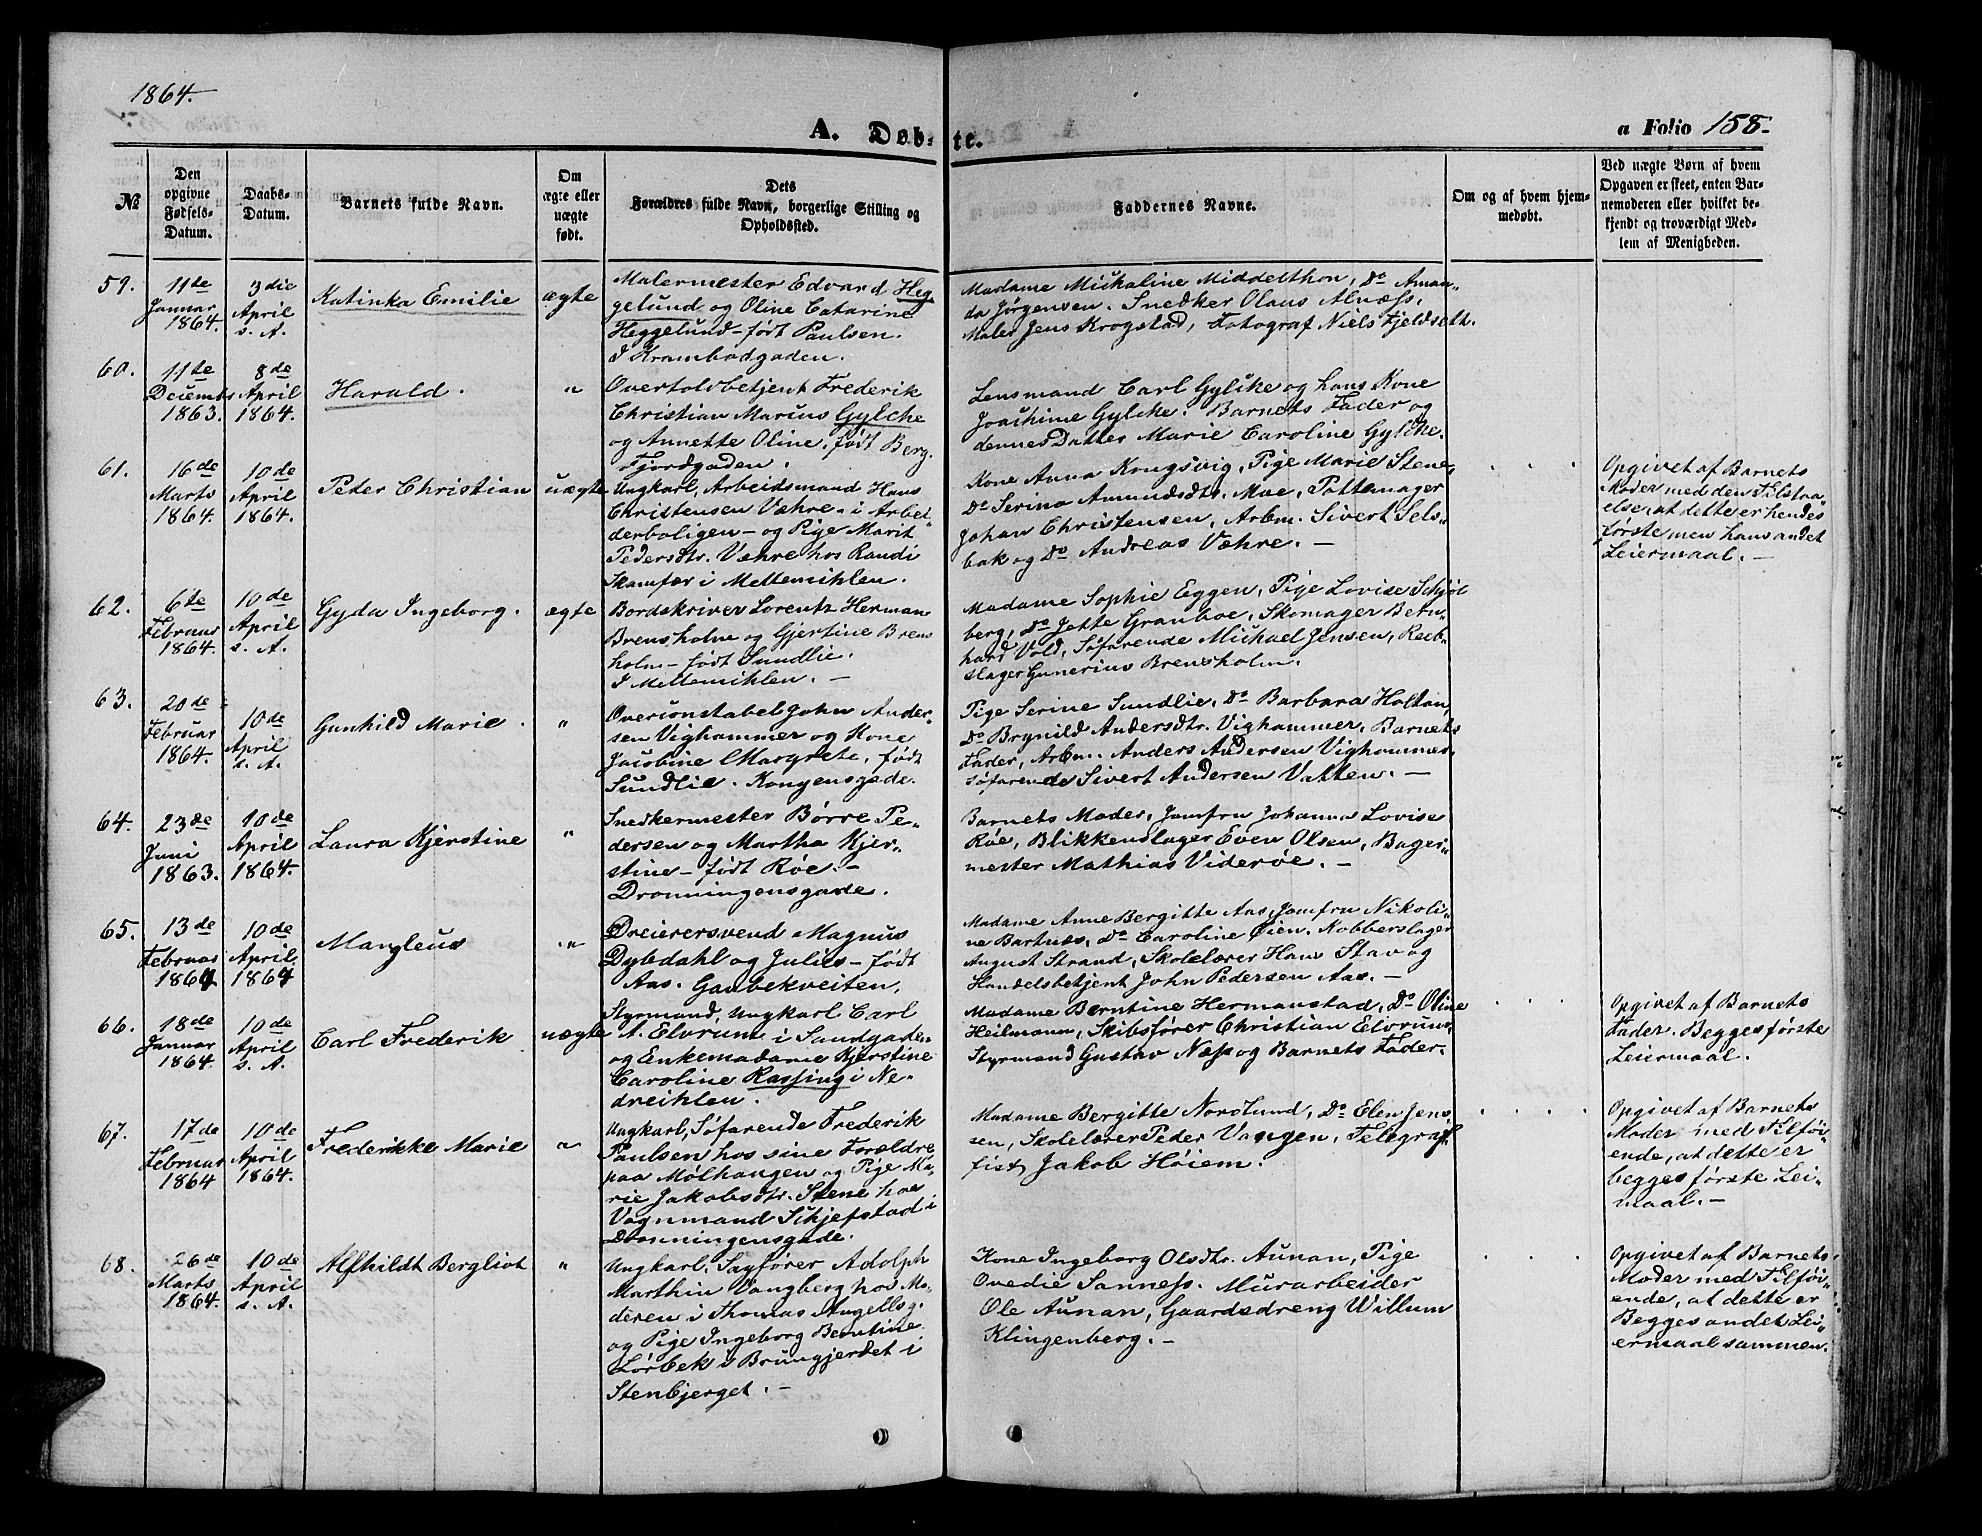 1864.
A. Døbte.
a Folio 158.
№
Den opgivne Fødsels-Datum.
Daabs-Datum.
Barnets fulde Navn.
Om ægte eller uægte født.
Dets Forældres fulde Navn, borgerlige Stilling og Opholdssted.
Faddernes Navne.
Om og af hvem hjemmedøbt.
Ved uægte Børn af hvem Opgaven er skeet, enten Barnemoderen eller hvilket bekjendt og troværdigt Medlem af Menigheden.
59.
11te Januar 1864.
3die April s. A.
Katinka Emilie
ægte
Malermester Edvard Heg-
gelund og Oline Catarine
Heggelund - født Paulsen.
I Krambodgaden.
Madame Michaline Middelthon, Do Aman-
da Jørgensen. Snedker Olaus Alnæss.
Maler Jens Krogstad, Fotograf Niels Fjeldseth.
60.
11te Decembr 1863.
8de April 1864.
Harald.
"
Overtoldbetjent Frederik
Christian Marius Gylche
og Annette Oline, født Berg.
Fjordgaden.
Lensmand Carl Gylche og hans Kone
Joachime Gylche. Barnets Fader og
dennes Datter Marie Caroline Gylche.
61.
16de Marts 1864.
10de April 1864.
Peter Christian
uægte
Ungkarl, Arbeidsmand Hans
Christensen Væhre - i Arbei-
derboligen - og Pige Marit
Pedersdtr. Væhre hos Randi
Skamfær i Mellemihlen.
Kone Anna Kongsvig, Pige Marie Stene
Do Serina Amundsdtr. Moe, Pottemager
Johan Christensen, Arbm. Sivert Sels-
bak og Do Andreas Væhre. -
Opgivet af Barnets
Moder med den Tilstaa-
else, at dette er hendes
første men hans andet
Leiermaal. -
62.
6te Februar 1864.
10de April s. A.
Gyda Ingeborg.
ægte
Bordskriver Lorentz Herman
Brensholm og Gjertine Brens-
holm - født Sundlie.
I Mellemihlen. -
Madame Sophie Eggen, Pige Lovise Schjøl-
berg, Do Jette Granboe, Skomager Bern-
hard Vold, Søfarende Michael Jensen, Reeb-
slager Gunerius Brensholm.
63.
20de Februar 1864.
10de April s. A.
Gunhild Marie.
"
Overconstabel John Ander-
sen Vighammer og Kone
Jacobine Margrete, født
Sundlie. Kongensgade.
Pige Serine Sundlie, Do Barbara Holtan,
Do Brynild Andersdtr. Vighammer, Barnets
Fader, Arbm. Anders Andersen Vighammer.
Søfarende Sivert Andersen Vatten. -
64.
23de Juni 1863.
10de April 1864.
Laura Kjerstine
"
Snedkermester Børre Pe-
dersen og Martha Kjer-
stine - født Røe. -
Dronningensgade.
Barnets Moder, Jomfru Johanna Lovise
Røe, Blikkenslager Even Olsen, Bager-
mester Mathias Viderøe. -
65.
13de Februar 1864
10de April 1864
Mangleus
"
Dreiersvend Magnus
Dybdahl og Julie - født
Aas. Gaubekveiten.
Madame Anne Bergitte Aas, Jomfru Nikoli-
ne Bartnæs, Do Caroline Øien. Kobberslager
August Strand, Skolelærer Hans Stav og
Handelsbetjent John Pedersen Aas. -
66.
18de Januar 1864.
10de April s. A.
Carl Frederik
uægte
Styrmand, Ungkarl Carl
A. Elvrum i Sandgaden
og Enkemadame Kjerstine
Caroline Rassing i Ne-
dreihlen.
Madame Berntine Hermanstad, Do Oline
Heilmann, Skibsfører Christian Elvrum,
Styrmand Gustav Næss og Barnets Fader.
Opgivet af Barnets
Fader. Begges første
Leiermaal.
67.
17de Februar 1864
10de April 1864.
Frederikke Marie
"
Ungkarl, Søfarende Frederik
Paulsen hos sine Forældre
paa Mølhaugen og Pige Ma-
rie Jakobsdtr. Stene hos
Vognmand Schjefstad i
Dronningensgade.
Madame Bergitte Nordlund, Do Elen Jen-
sen, Skolelærer Peder Vangen, Telegraf-
fist Jakob Høiem.
Opgivet af Barnets
Moder med Tilføi-
ende, at dette er
begges første Lei-
maal. -
68.
26de Marts 1864.
10de April s. A.
Alfhildt Bergliot
"
Ungkarl, Sagfører Adolph
Marthin Vangberg hos Mo-
deren i Thomas Angellsg.
og Pige Ingeborg Berntine
Lørbek i Brungjerdet i
Stenbjerget. -
Kone Ingeborg Olsdtr. Aunan, Pige
Ovedie Sanness. Murarbeider
Ole Aunan, Gaardsdreng Willum
Klingenberg. -
Opgivet af Barnets
Moder med Tilføi-
ende, at dette er
Begges andet Lei-
ermaal sammen.